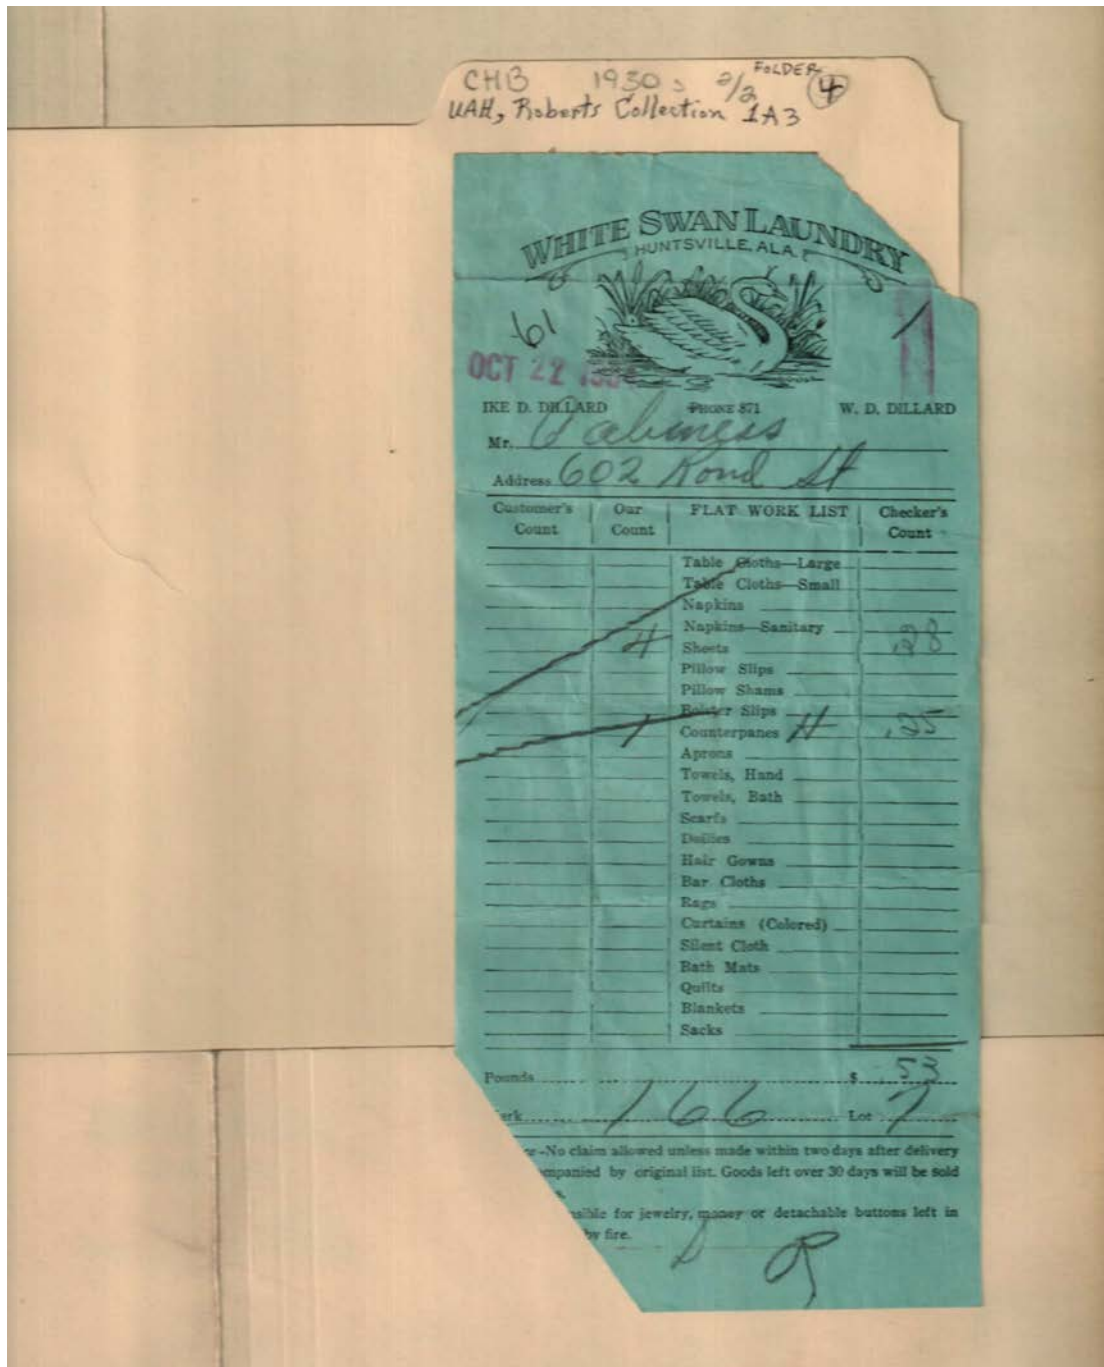 FOLDER
CHB 1930s 2/2 4
UAH, Roberts Collection 1A3
WHITE SWAN LAUNDRY
HUNTSVILLE, ALA.
61 1
OCT 22
IKE D. DILLARD PHONE 871 W. D. DILLARD
Mr. Cabiness
Address 602 Rand St
Customer's Count Our Count FLAT WORK LIST Checker's Count
Table Cloths—Large
Table Cloths—Small
Napkins
Napkins—Sanitary
4 Sheets .28
Pillow Slips
Pillow Shams
Bolster Slips
1 Counterpanes H .25
Aprons
Towels, Hand
Towels, Bath
Scarfs
Doilies
Hair Gowns
Bar Cloths
Rags
Curtains (Colored)
Silent Cloth
Bath Mats
Quilts
Blankets
Sacks
Pounds $ .53
erk 166 Lot 7
-No claim allowed unless made within two days after delivery
mpanied by original list. Goods left over 30 days will be sold
s.
sible for jewelry, money or detachable buttons left in
by fire.